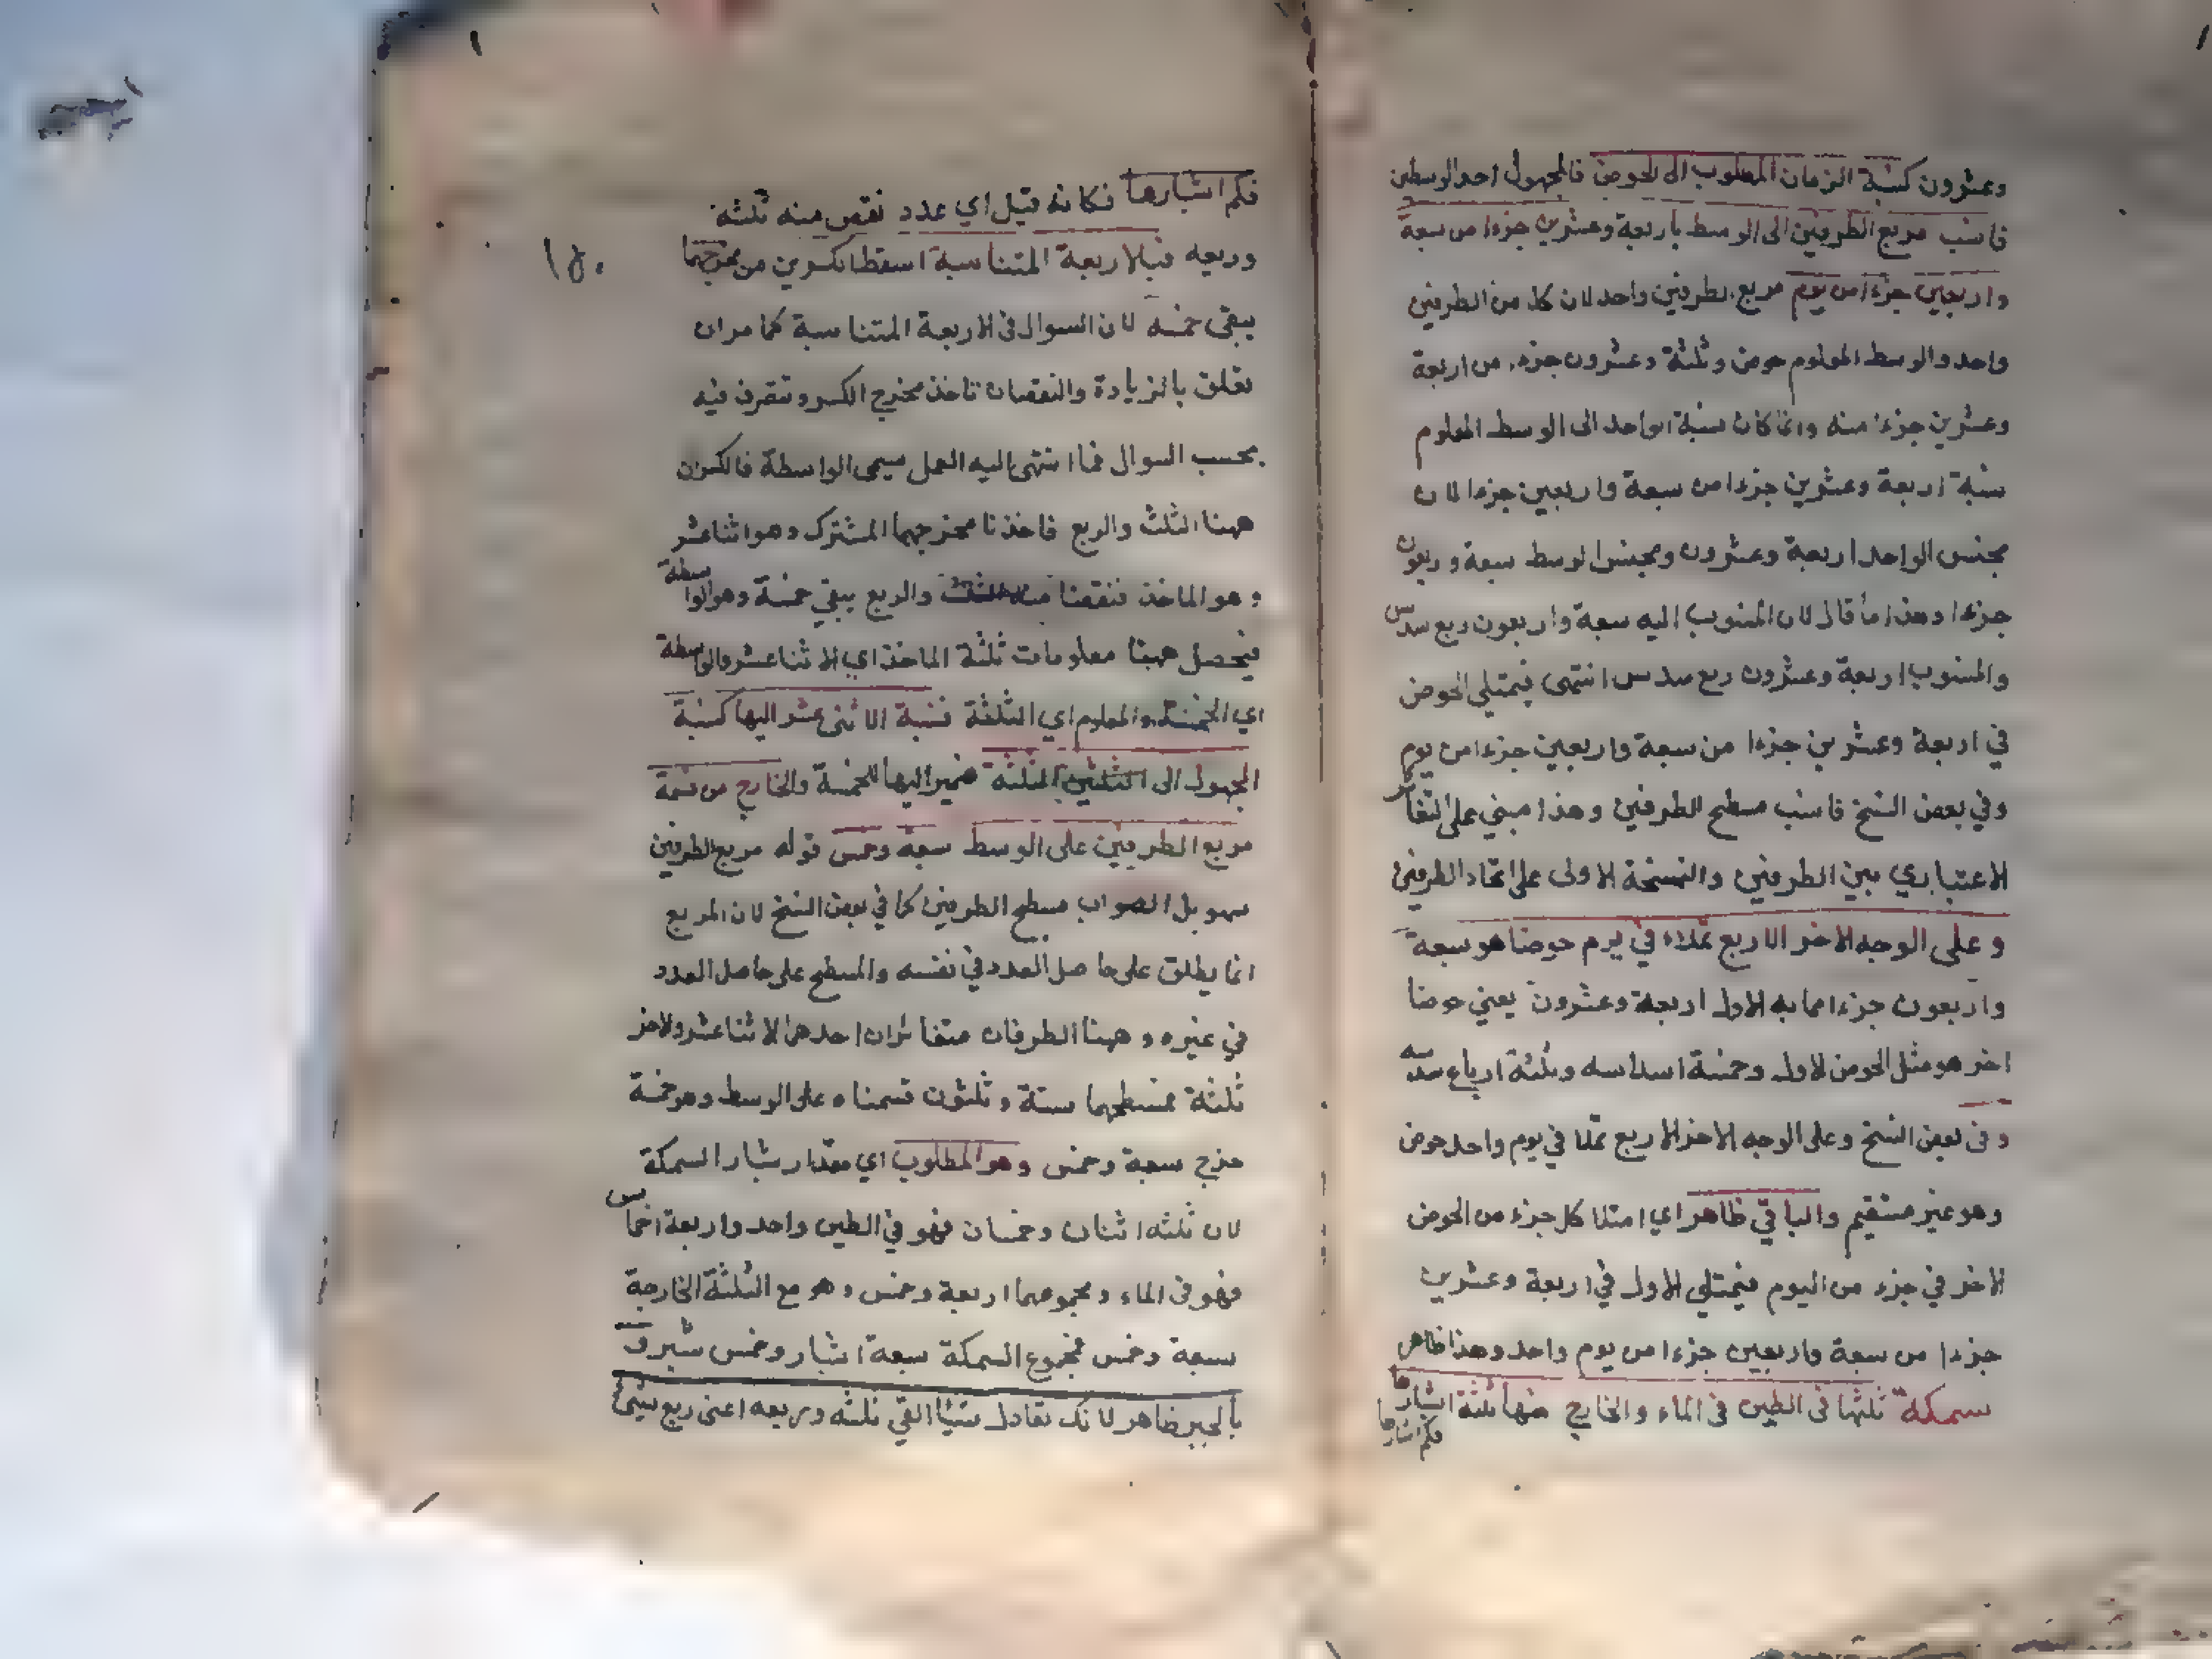 وعشرون كنسبة الزمان المطلوب الى الحوض فالمجهول احد الوسطين
فانسب مربع الطرفين الى الوسط باربعة وعشرين جزءا من سبعة
واربعين جزءا من يوم مربع الطرفين واحد لان كلا من الطرفين
واحد والوسط المعلوم حوض وثلثة وعشرون جزء من اربعة
وعشرين جزءا منه وانما كان نسبة الواحد الى الوسط المعلوم
نسبة اربعة وعشرين جزءا من سبعة واربعين جزءا لان
مجنس الواحد اربعة وعشرون ومجنس الوسط سبعة واربعون
جزءا وهذا ما قال لان المنسوب اليه سبعة واربعون ربع سدس
والمنسوب اربعة وعشرون ربع سدس انتهى فيمتلي الحوض
في اربعة وعشرين جزءا من سبعة واربعين جزءا من يوم
وفي بعض النسخ فانسب مسطح الطرفين وهذا مبني على التغاير
الاعتباري بين الطرفين والنسخة الاولى على اتحاد الطرفين
وعلى الوجه الاخر الاربع تملاء في يوم حوضا هو سبعة
واربعون جزءا مما به الاول اربعة وعشرون يعني حوضا
اخر هو مثل الحوض الاول وخمسة اسداسه وثلثة ارباع سدسه
وفي بعض النسخ وعلى الوجه الاخر الاربع تملا في يوم واحد حوض
وهو غير مستقيم والباقي ظاهر اي امتلا كل جزء من الحوض
الاخر في جزء من اليوم فيمتلي الاول في اربعة وعشرين
جزءا من سبعة واربعين جزءا من يوم واحد وهذا ظاهر
سمكة ثلثها في الطين في الماء والخارج منها ثلثة اشبارها
فكم اشبارها
فكم اشبارها فكانه قيل اي عدد نقص منه ثلثه
وربعه فبالاربعة المتناسبة اسقط الكسرين من مخرجهما
١٥٠
يبقى خمسة لان السوال في الاربعة المتناسبة كما مر ان
تعلق بالزيادة والنقصان تاخذ مخرج الكسر وتتصرف فيه
بحسب السوال فما انتهى اليه العمل يسمى الواسطة فالكسران
ههنا الثلث والربع فاخذنا مخرجهما المشترك وهو اثنا عشر
وهو الماخذ فنقصنا منه الثلث والربع يبقي خمسة وهو الواسطة
فيحصل ههنا معلومات ثلثة الماخذ اي الاثنا عشر والواسطة
اي الخمسة والمعلوم اي الثلثة فنسبة الاثنى عشر اليها كنسبة
المجهول الى الثلثة ضمير اليها للخمسة والخارج من قسمة
مربع الطرفين على الوسط سبعة وخمس قوله مربع الطرفين
سهو بل الصواب مسطح الطرفين كما في بعض النسخ لان المربع
انما يطلق على حاصل العدد في نفسه والمسطح على حاصل العدد
في غيره وههنا الطرفان متغائران احدهما الاثنا عشر والاخر
ثلثة فمسطحهما ستة وثلثون قسمناه على الوسط وهو خمسة
خرج سبعة وخمس وهو المطلوب اي مقدار شبار السمكة
لان ثلثه اثنان وخمسان فهو في الطين واحد واربعة اخماس
فهو في الماء ومجموعهما اربعة وخمس وهو مع الثلثة الخارجة
سبعة وخمس فمجموع السمكة سبعة اشبار وخمس شبر و
بالجبر ظاهر لانك تعادل شيئا القي ثلثه وربعه اعني ربع شيئ